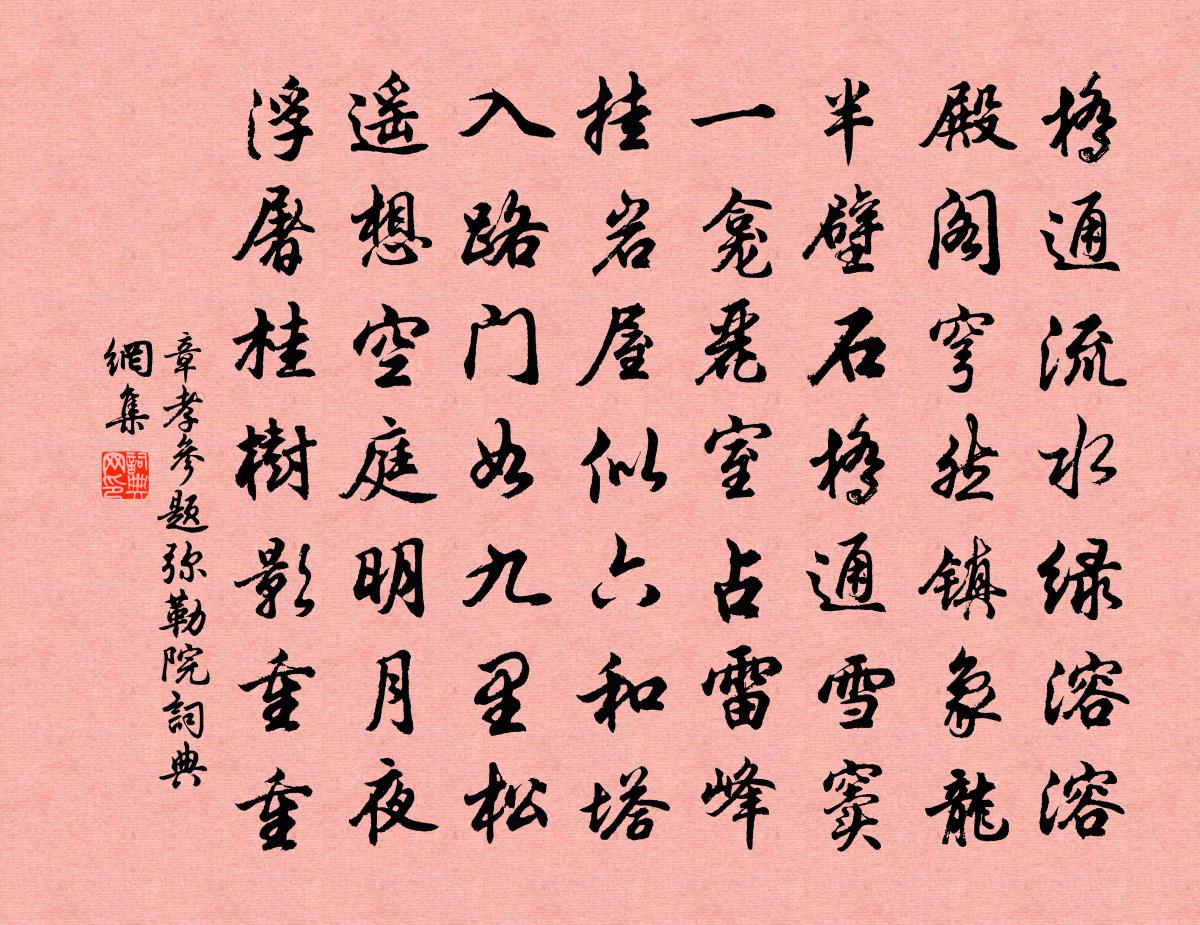 橋通流水緑溶溶
殿阁穹然镇象龍
半壁石橋通雪窦
一龛丽室占雷峰
挂岩屋似六和塔
入路门如九里松
遥想空庭明月夜
浮屠桂樹影重重
章孝参题弥勒院詞典
網集
詞典网印